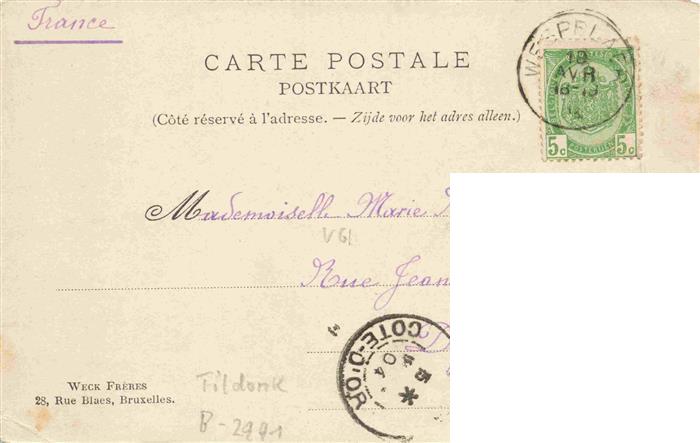 France
CARTE POSTALE
POSTKAART
(Côté réservé à l'adresse. — Zijde voor het adres alleen.)
WESPELAER
18
AVR
5c 5c
Mademoiselle Marie
VGl
Rue Jean
COTE-D'OR
04
WECK FRÈRES
28, Rue Blaes, Bruxelles.
Tildonk
B-2991